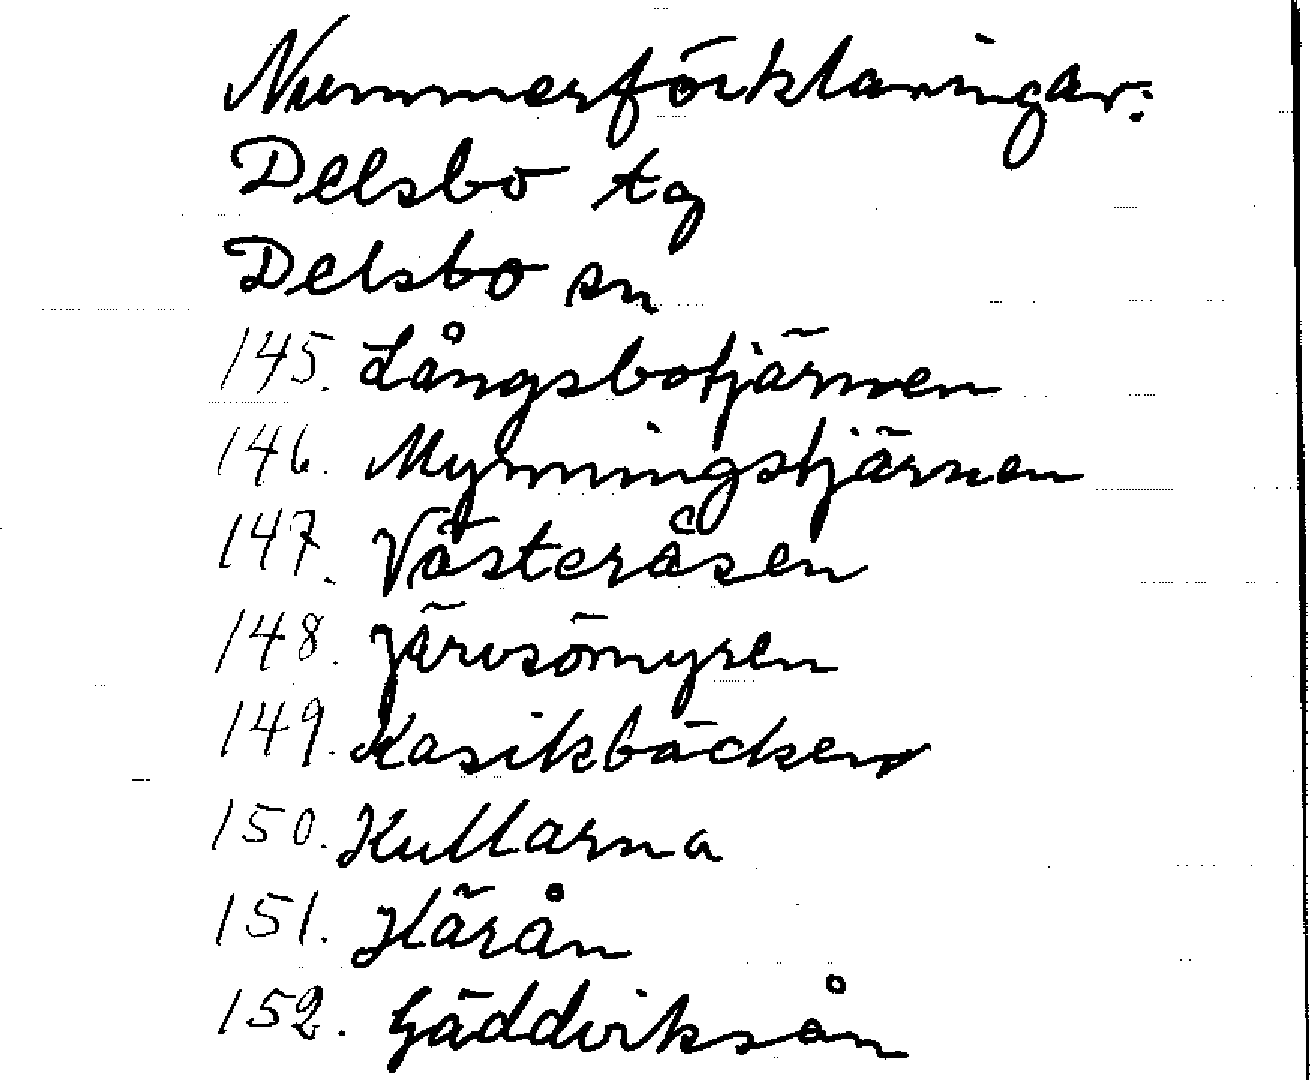 Nummerförklaringar:
Delsbo tg
Delsbo sn
145. Långsbotjärnen
146. Mynningstjärnen
147. Västeråsen
148. Järvsömyren
149. Kasikbäcken
150. Kullarna
151. Härån
152. Gäddviksån